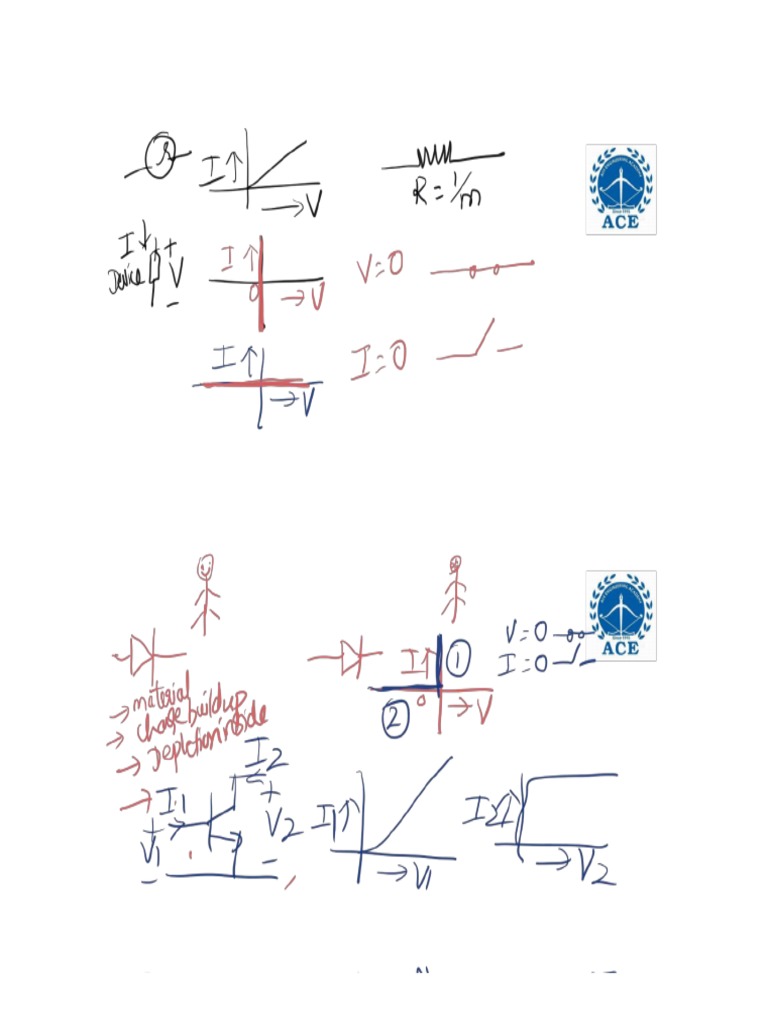 I ↑
→ V
R = 1/m
ACE
I ↓ +
Device V
−
I ↑
0 → V
V=0
I ↑
→ V
I=0
V=0
I=0
ACE
I ↑ ①
0 → V
②
→ material
→ charge buildup
→ Depletion inside
→
I1
I2
+ V1 −
+ V2 −
I1 ↑
→ V1
I2 ↑
→ V2